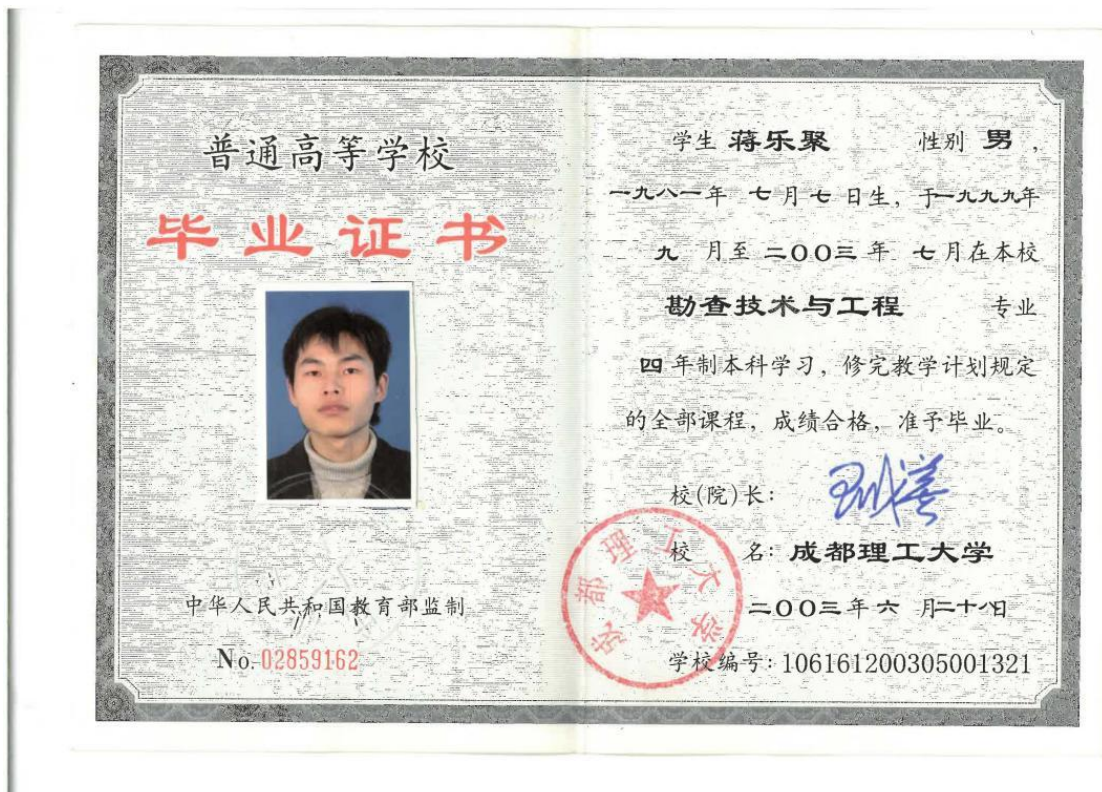 普通高等学校
毕业证书
中华人民共和国教育部监制
No. 02859162
学生 蒋乐聚 性别 男 ,
一九八一年 七月七日生，于一九九九年
九 月至二〇〇三年 七月在本校
勘查技术与工程 专业
四年制本科学习，修完教学计划规定
的全部课程，成绩合格，准予毕业。
校(院)长：
校 名：成都理工大学
二〇〇三年六 月二十八日
学校编号：106161200305001321
成都理工大学